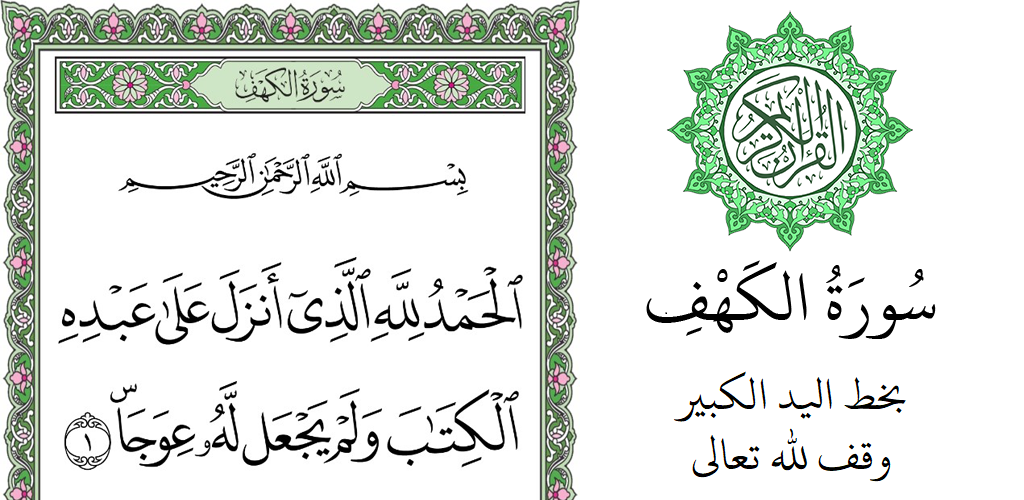 سُورَةُ الكَهْفِ
بِسْمِ ٱللَّهِ ٱلرَّحْمَٰنِ ٱلرَّحِيمِ
ٱلْحَمْدُ لِلَّهِ ٱلَّذِىٓ أَنزَلَ عَلَىٰ عَبْدِهِ
ٱلْكِتَٰبَ وَلَمْ يَجْعَل لَّهُۥ عِوَجَاۜ ١
القُرْآنُ الكَرِيمُ
سُورَةُ الكَهْفِ
بخط اليد الكبير
وقف لله تعالى